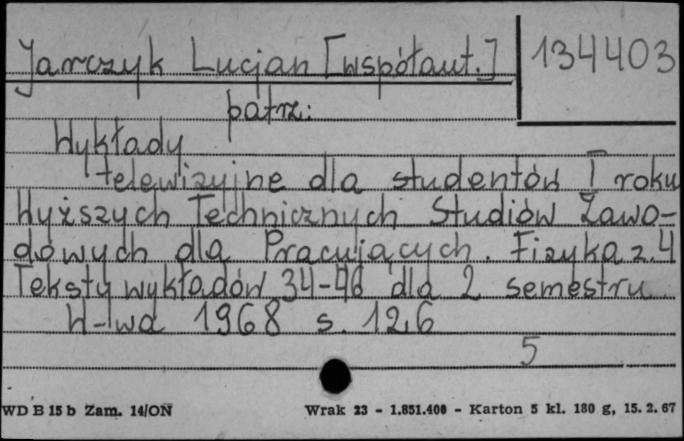 Jarczyk Lucjan [współaut.] 134403
patrz:
Wykłady
telewizyjne dla studentów I roku
Wyższych Technicznych Studiów Zawo-
dowych dla Pracujących. Fizyka z. 4
Teksty wykładów 34-46 dla 2 semestru
W-wa 1968 s. 126
5
WD B 15 b Zam. 14/ON Wrak 23 - 1.851.400 - Karton 5 kl. 180 g, 15. 2. 67